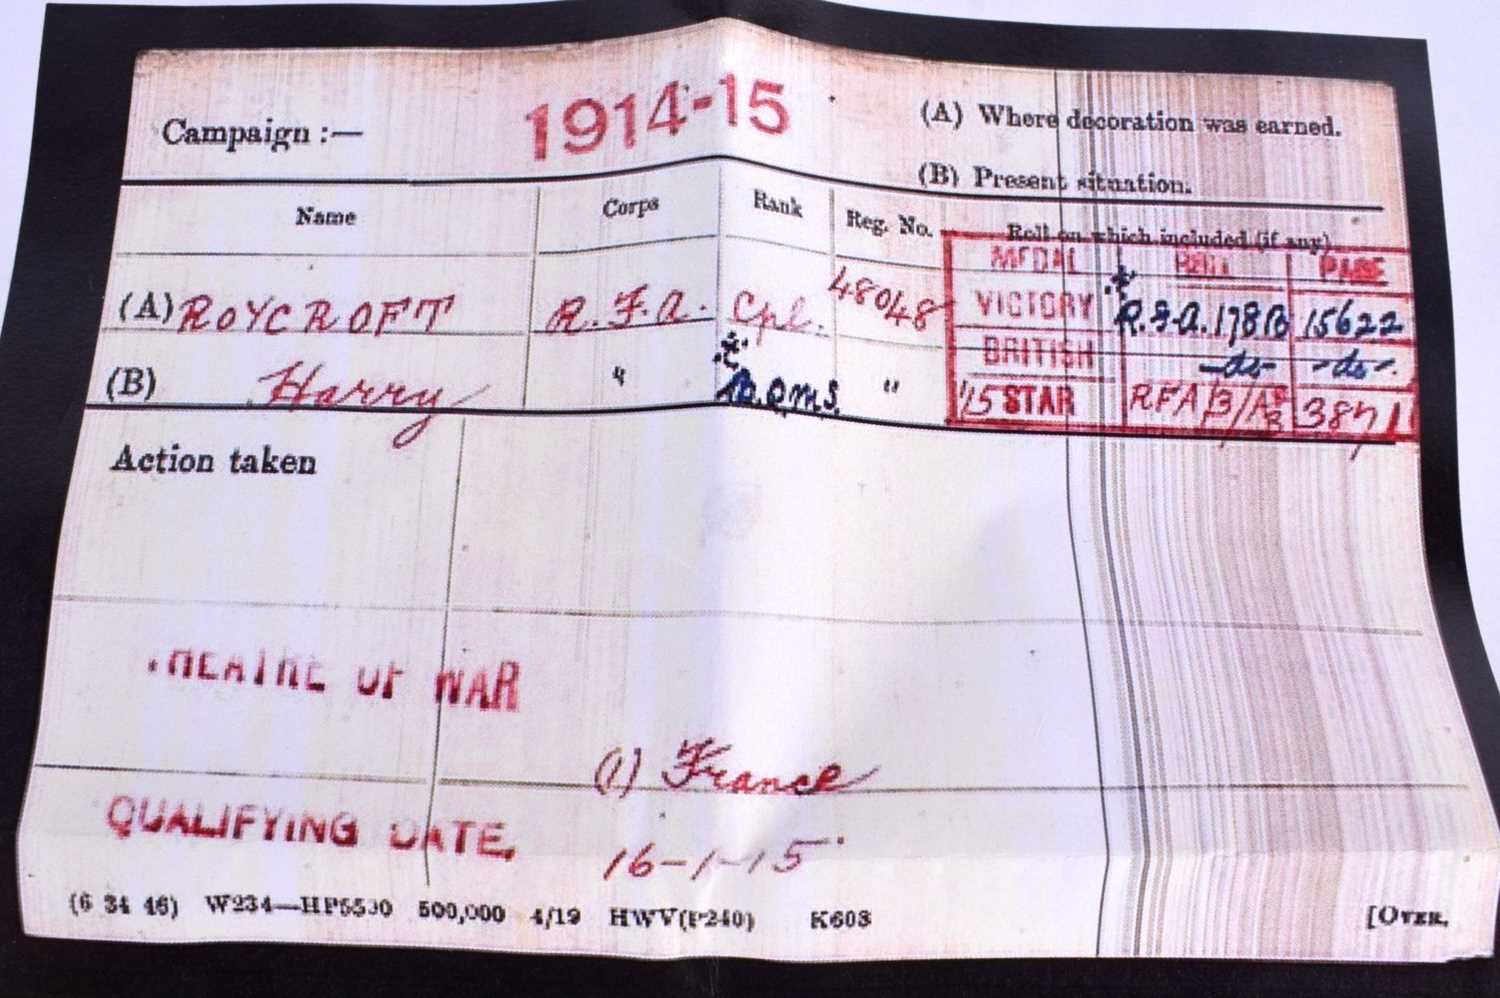 Campaign :— 1914-15 (A) Where decoration was earned.
(B) Present situation.
Name Corps Rank Reg. No. Roll on which included (if any)
MEDAL ROLL PAGE
(A) ROYCROFT R.F.A. Cpl. 48048 VICTORY R.F.A. 178B 15622
BRITISH -do- -do-.
(B) Harry " B.Q.M.S. " '15 STAR RFA/3/A 3871
Action taken
THEATRE OF WAR
(1) France
QUALIFYING DATE. 16-1-15.
(6 34 46) W234—HP5500 500,000 4/19 HWV(P240) K608 [OVER.